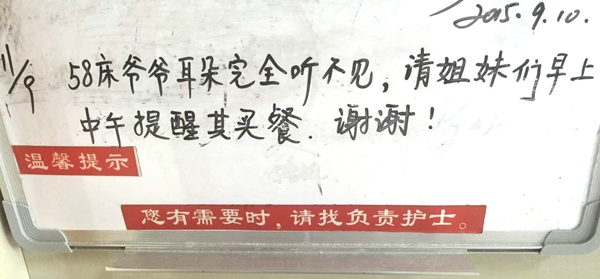 2015.9.10.
11/9 58床爷爷耳朵完全听不见，请姐妹们早上
中午提醒其买餐．谢谢！
温馨提示
您有需要时，请找负责护士。